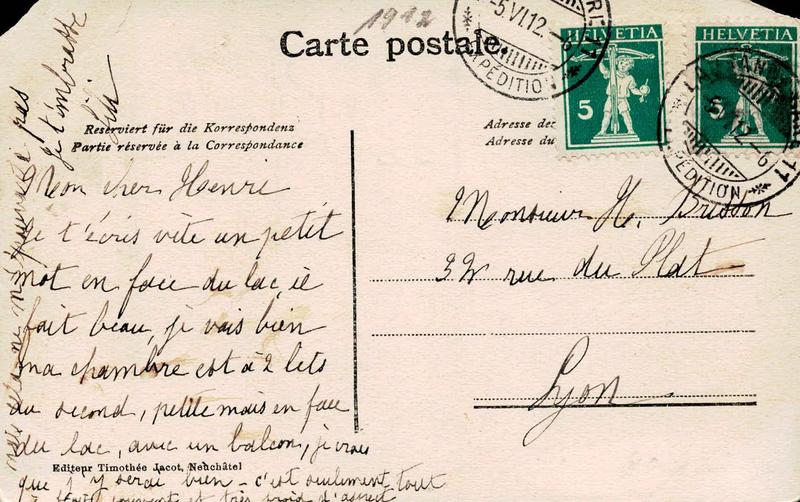 1912
Carte postale
-5.VI.12.-6
EXPÉDITION
HELVETIA
5
HELVETIA
5
VI.12.-6
EXPÉDITION
11
Reserviert für die Korrespondenz
Partie réservée à la Correspondance
Adresse des
Adresse du
Mon cher Henri
Je t'écris vite un petit
mot en face du lac, il
fait beau, je vais bien
ma chambre est à 2 lits
au second, petite mais en face
du lac, avec un balcon, je crois
Editeur Timothée Jacot, Neuchâtel
que j'y serai bien - c'est seulement tout
et très
pas
je t'embrasse
Monsieur H. Brisson
32 rue du Plat
Lyon